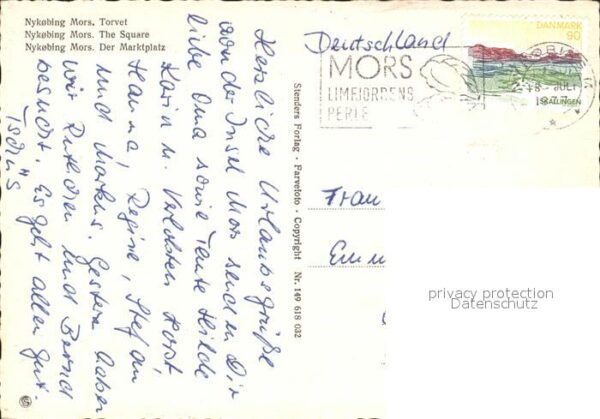 Nykøbing Mors. Torvet
Nykøbing Mors. The Square
Nykøbing Mors. Der Marktplatz
Herzliche Urlaubsgrüße
von der Insel Mors senden Dir
liebe Oma sowie Tante Hilde
Karin u. Horst,
Hanna, Regine, Stefan
und Markus. Gestern haben
wir und Bernd
besucht. Es geht allen gut.
Tschüs
Stenders Forlag · Farvefoto · Copyright Nr. 149 618 032
Deutschland
MORS
LIMFJORDENS
PERLE
DANMARK
90
SKALLINGEN
JULI
Frau
privacy protection
Datenschutz